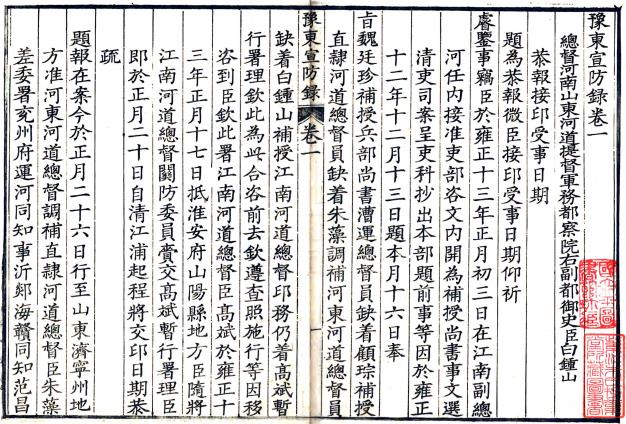 豫東宣防錄卷一
總督河南山東河道提督軍務都察院右副都御史臣白鍾山
恭報接印受事日期
題為恭報微臣接印受事日期仰祈
睿鑒事竊臣於雍正十三年正月初三日在江南副總
河任內接准吏部咨文內開為補授尚書事文選
清吏司案呈吏科抄出本部題前事等因於雍正
十二年十二月十三日題本月十六日奉
旨魏廷珍補授兵部尚書漕運總督員缺着顧琮補授
直隸河道總督員缺着朱藻調補河東河道總督員
豫東宣防錄 卷一 一
缺着白鍾山補授江南河道總督印務仍着高斌暫
行署理欽此為此合咨前去欽遵查照施行等因移
咨到臣欽此署江南河道總督臣高斌於雍正十
三年正月十七日抵淮安府山陽縣地方臣隨將
江南河道總督關防委員賫交高斌暫行署理臣
即於正月二十日自清江浦起程將交印日期恭
疏
題報在案今於正月二十六日行至山東濟寧州地
方准河東河道總督調補直隸河道總督臣朱藻
差委署兗州府運河同知事沂郯海贛同知范昌